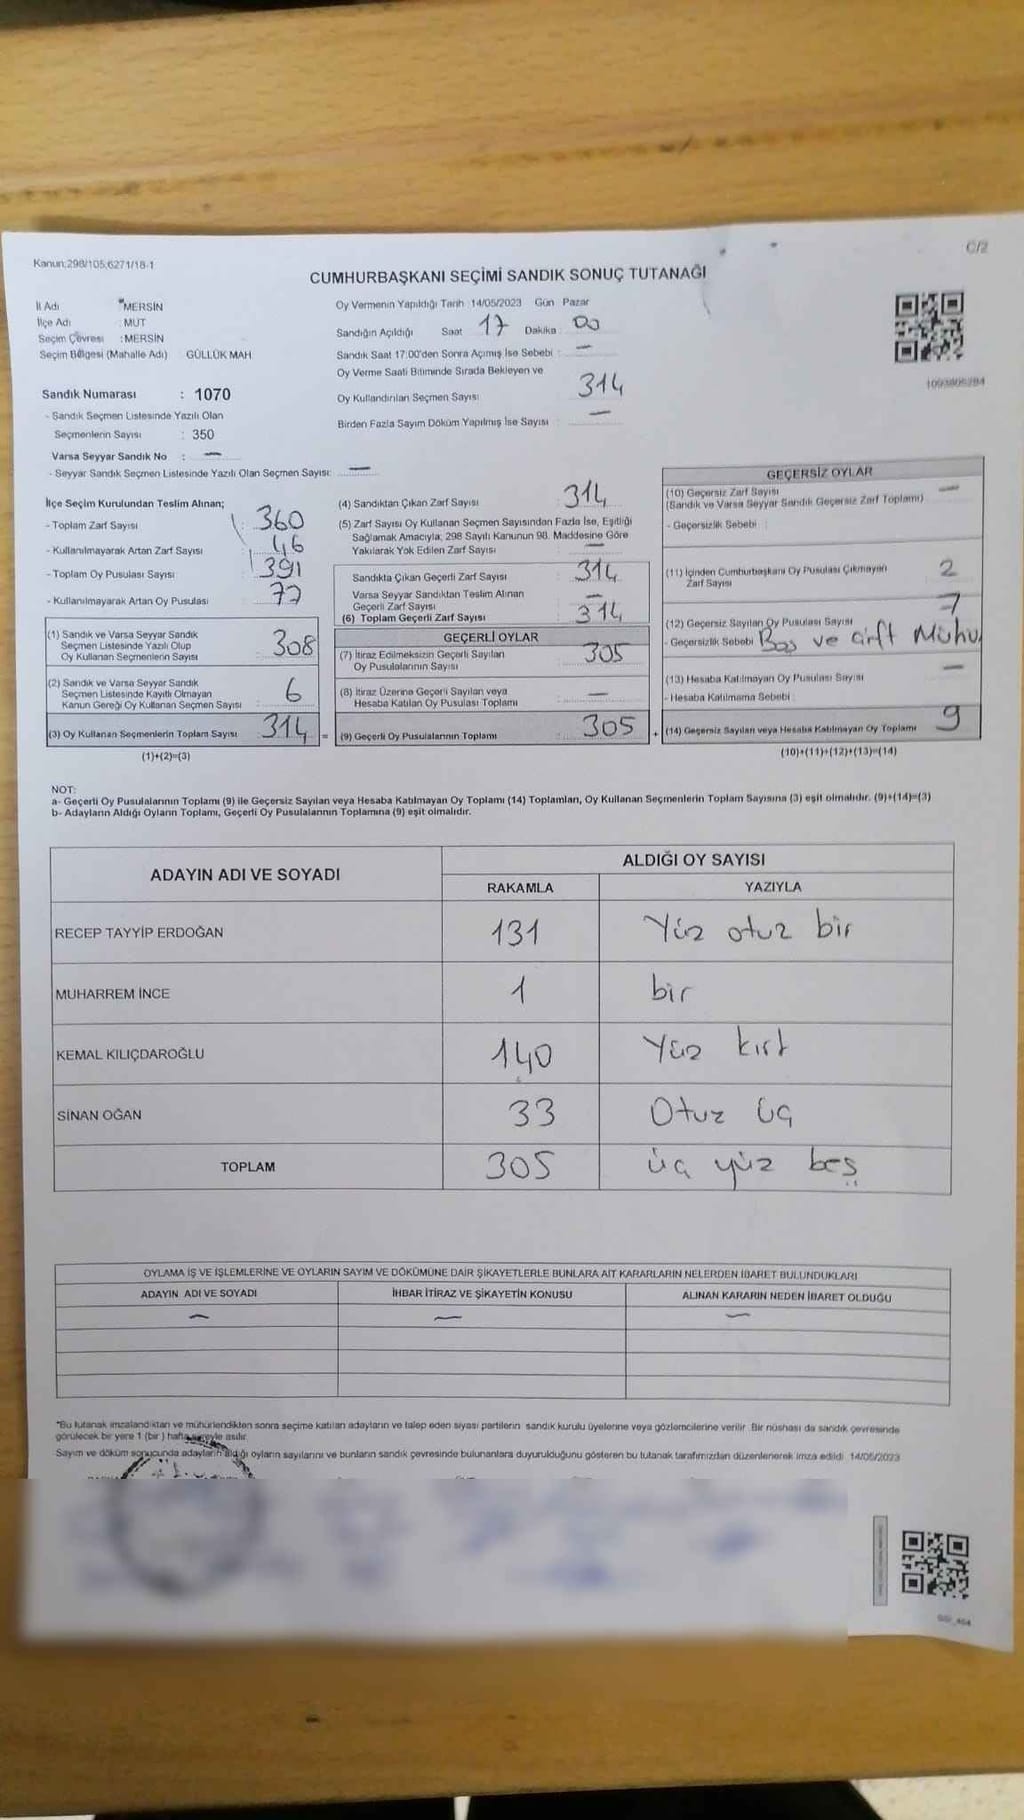 C/2
Kanun:298/105,6271/18-1
CUMHURBAŞKANI SEÇİMİ SANDIK SONUÇ TUTANAĞI
İl Adı : MERSİN
İlçe Adı : MUT
Seçim Çevresi : MERSİN
Seçim Bölgesi (Mahalle Adı) GÜLLÜK MAH
Sandık Numarası : 1070
- Sandık Seçmen Listesinde Yazılı Olan
Seçmenlerin Sayısı : 350
Varsa Seyyar Sandık No : —
- Seyyar Sandık Seçmen Listesinde Yazılı Olan Seçmen Sayısı: —
Oy Vermenin Yapıldığı Tarih 14/05/2023 Gün Pazar
Sandığın Açıldığı Saat 17 Dakika : 00
Sandık Saat 17:00'den Sonra Açmış İse Sebebi : —
Oy Verme Saati Bitiminde Sırada Bekleyen ve
Oy Kullandırılan Seçmen Sayısı 314
Birden Fazla Sayım Döküm Yapılmış İse Sayısı : —
İlçe Seçim Kurulundan Teslim Alınan;
- Toplam Zarf Sayısı 360
- Kullanılmayarak Artan Zarf Sayısı 46
- Toplam Oy Pusulası Sayısı 391
- Kullanılmayarak Artan Oy Pusulası 77
(1) Sandık ve Varsa Seyyar Sandık
Seçmen Listesinde Yazılı Olup
Oy Kullanan Seçmenlerin Sayısı 308
(2) Sandık ve Varsa Seyyar Sandık
Seçmen Listesinde Kayıtlı Olmayan
Kanun Gereği Oy Kullanan Seçmen Sayısı 6
(3) Oy Kullanan Seçmenlerin Toplam Sayısı 314 =
(1)+(2)=(3)
(4) Sandıktan Çıkan Zarf Sayısı : 314
(5) Zarf Sayısı Oy Kullanan Seçmen Sayısından Fazla İse, Eşitliği
Sağlamak Amacıyla, 298 Sayılı Kanunun 98. Maddesine Göre
Yakılarak Yok Edilen Zarf Sayısı —
Sandıkta Çıkan Geçerli Zarf Sayısı 314
Varsa Seyyar Sandıktan Teslim Alınan
Geçerli Zarf Sayısı —
(6) Toplam Geçerli Zarf Sayısı 314
GEÇERLİ OYLAR
(7) İtiraz Edilmeksizin Geçerli Sayılan
Oy Pusulalarının Sayısı 305
(8) İtiraz Üzerine Geçerli Sayılan veya
Hesaba Katılan Oy Pusulası Toplamı —
(9) Geçerli Oy Pusulalarının Toplamı 305 +
GEÇERSİZ OYLAR
(10) Geçersiz Zarf Sayısı —
(Sandık ve Varsa Seyyar Sandık Geçersiz Zarf Toplamı)
- Geçersizlik Sebebi :
(11) İçinden Cumhurbaşkanı Oy Pusulası Çıkmayan
Zarf Sayısı 2
(12) Geçersiz Sayılan Oy Pusulası Sayısı 7
- Geçersizlik Sebebi Boş ve Çift Mühü
(13) Hesaba Katılmayan Oy Pusulası Sayısı —
- Hesaba Katılmama Sebebi :
(14) Geçersiz Sayılan veya Hesaba Katılmayan Oy Toplamı 9
(10)+(11)+(12)+(13)=(14)
NOT:
a- Geçerli Oy Pusulalarının Toplamı (9) ile Geçersiz Sayılan veya Hesaba Katılmayan Oy Toplamı (14) Toplamları, Oy Kullanan Seçmenlerin Toplam Sayısına (3) eşit olmalıdır. (9)+(14)=(3)
b- Adayların Aldığı Oyların Toplamı, Geçerli Oy Pusulalarının Toplamına (9) eşit olmalıdır.
ADAYIN ADI VE SOYADI ALDIĞI OY SAYISI
RAKAMLA YAZIYLA
RECEP TAYYİP ERDOĞAN 131 Yüz otuz bir
MUHARREM İNCE 1 bir
KEMAL KILIÇDAROĞLU 140 Yüz kırk
SİNAN OĞAN 33 Otuz üç
TOPLAM 305 üç yüz beş
OYLAMA İŞ VE İŞLEMLERİNE VE OYLARIN SAYIM VE DÖKÜMÜNE DAİR ŞİKAYETLERLE BUNLARA AİT KARARLARIN NELERDEN İBARET BULUNDUKLARI
ADAYIN ADI VE SOYADI İHBAR İTİRAZ VE ŞİKAYETİN KONUSU ALINAN KARARIN NEDEN İBARET OLDUĞU
— — —
*Bu tutanak imzalandıktan ve mühürlendikten sonra seçime katılan adayların ve talep eden siyasi partilerin sandık kurulu üyelerine veya gözlemcilerine verilir. Bir nüshası da sandık çevresinde
görülecek bir yere 1 (bir) hafta süreyle asılır.
Sayım ve döküm sonucunda adayların aldığı oyların sayılarını ve bunların sandık çevresinde bulunanlara duyurulduğunu gösteren bu tutanak tarafımızdan düzenlenerek imza edildi. 14/05/2023